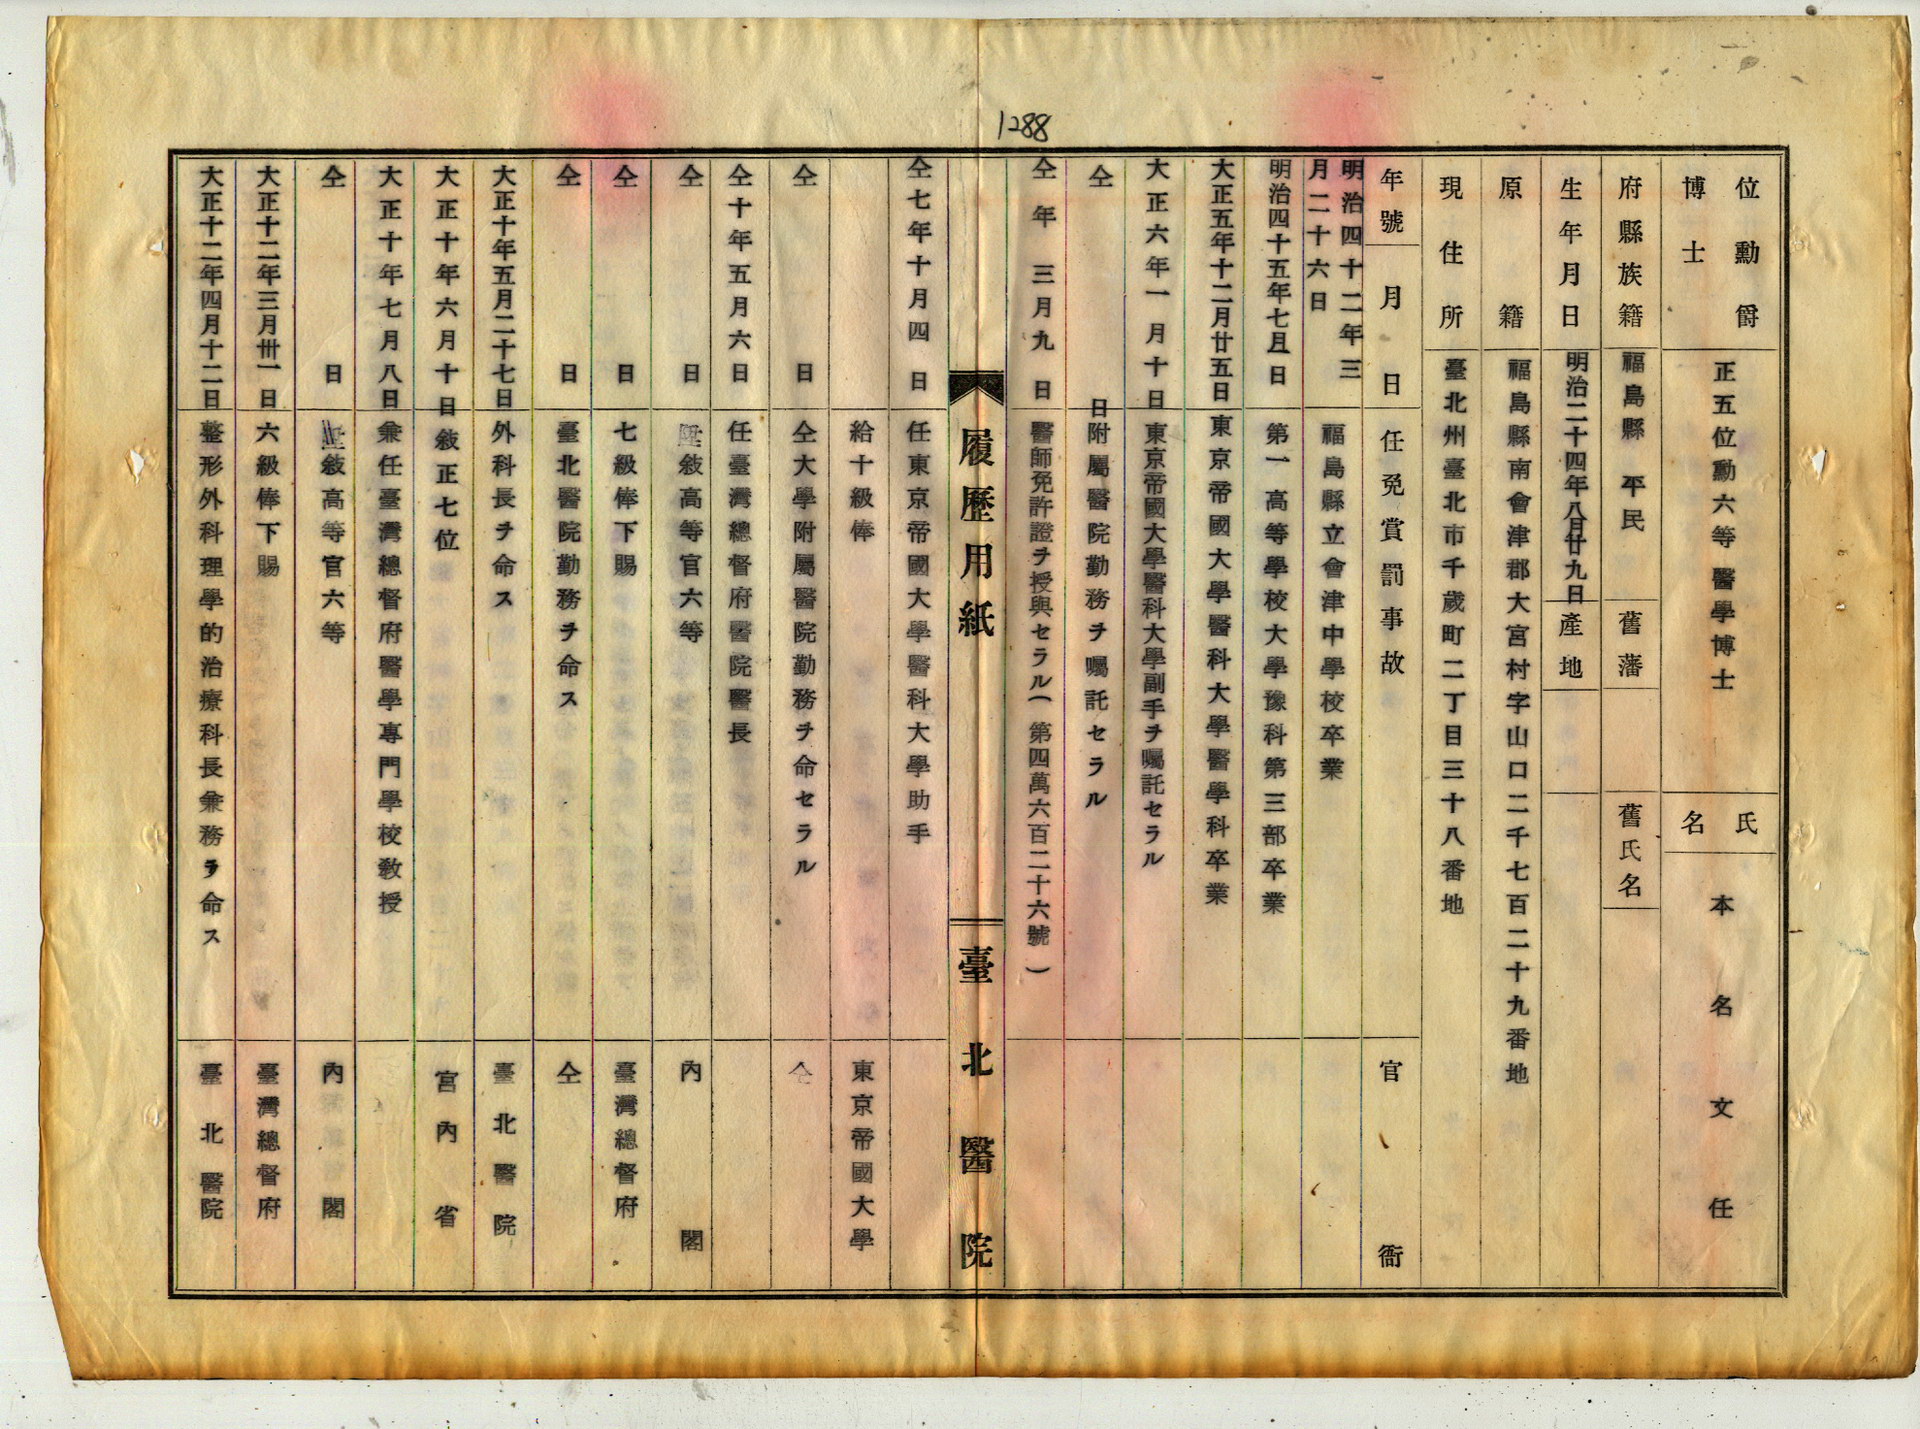 1288
位勳爵
博士
正五位勳六等 醫學博士
氏名
本名文任
府縣族籍
福島縣 平民
舊藩
舊氏名
生年月日
明治二十四年八月廿九日
產地
原籍
福島縣南會津郡大宮村字山口二千七百二十九番地
現住所
臺北州臺北市千歲町二丁目三十八番地
年號月日
任免賞罰事故
官衙
明治四十二年三
月二十六日
福島縣立會津中學校卒業
明治四十五年七月一日
第一高等學校大學豫科第三部卒業
大正五年十二月廿五日
東京帝國大學醫科大學醫學科卒業
大正六年一月十日
東京帝國大學醫科大學副手ヲ囑託セラル
仝 日
附屬醫院勤務ヲ囑託セラル
仝年 三月九 日
醫師免許證ヲ授與セラル(第四萬六百二十六號)
履歷用紙
臺北醫院
仝七年十月四 日
任東京帝國大學醫科大學助手
給十級俸
東京帝國大學
仝 日
仝大學附屬醫院勤務ヲ命セラル
仝
仝十年五月六日
任臺灣總督府醫院醫長
仝 日
敘高等官六等
內閣
仝 日
七級俸下賜
臺灣總督府
仝 日
臺北醫院勤務ヲ命ス
仝
大正十年五月二十七日
外科長ヲ命ス
臺北醫院
大正十年六月十日
敘正七位
宮內省
大正十年七月八日
兼任臺灣總督府醫學專門學校教授
仝 日
敘高等官六等
內閣
大正十二年三月卅一日
六級俸下賜
臺灣總督府
大正十二年四月十二日
整形外科理學的治療科長兼務ヲ命ス
臺北醫院